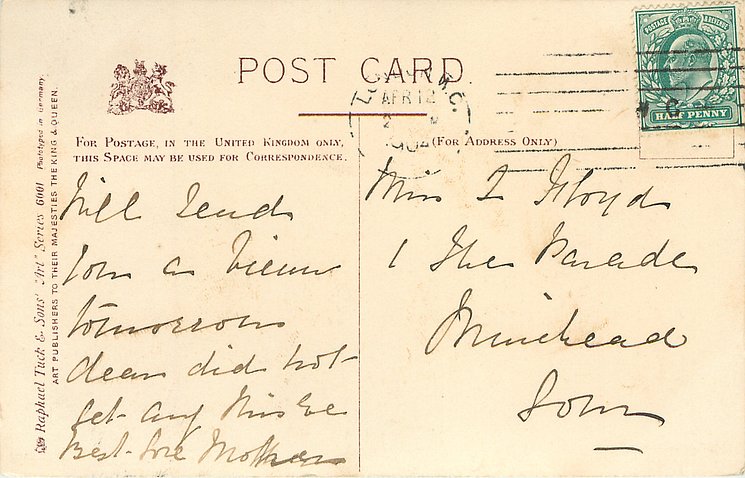 POST CARD.
FOR POSTAGE, IN THE UNITED KINGDOM ONLY,
THIS SPACE MAY BE USED FOR CORRESPONDENCE.
(FOR ADDRESS ONLY)
Raphael Tuck & Sons' "Art" Series 6001 Phototyped in Germany.
ART PUBLISHERS TO THEIR MAJESTIES THE KING & QUEEN.
POSTAGE & REVENUE
HALF PENNY
APR 12
04
Will send
you a view
tomorrow
dear did not
get any this Eve
Best love Mother
Miss L Floyd
1 The Parade
Minehead
Som